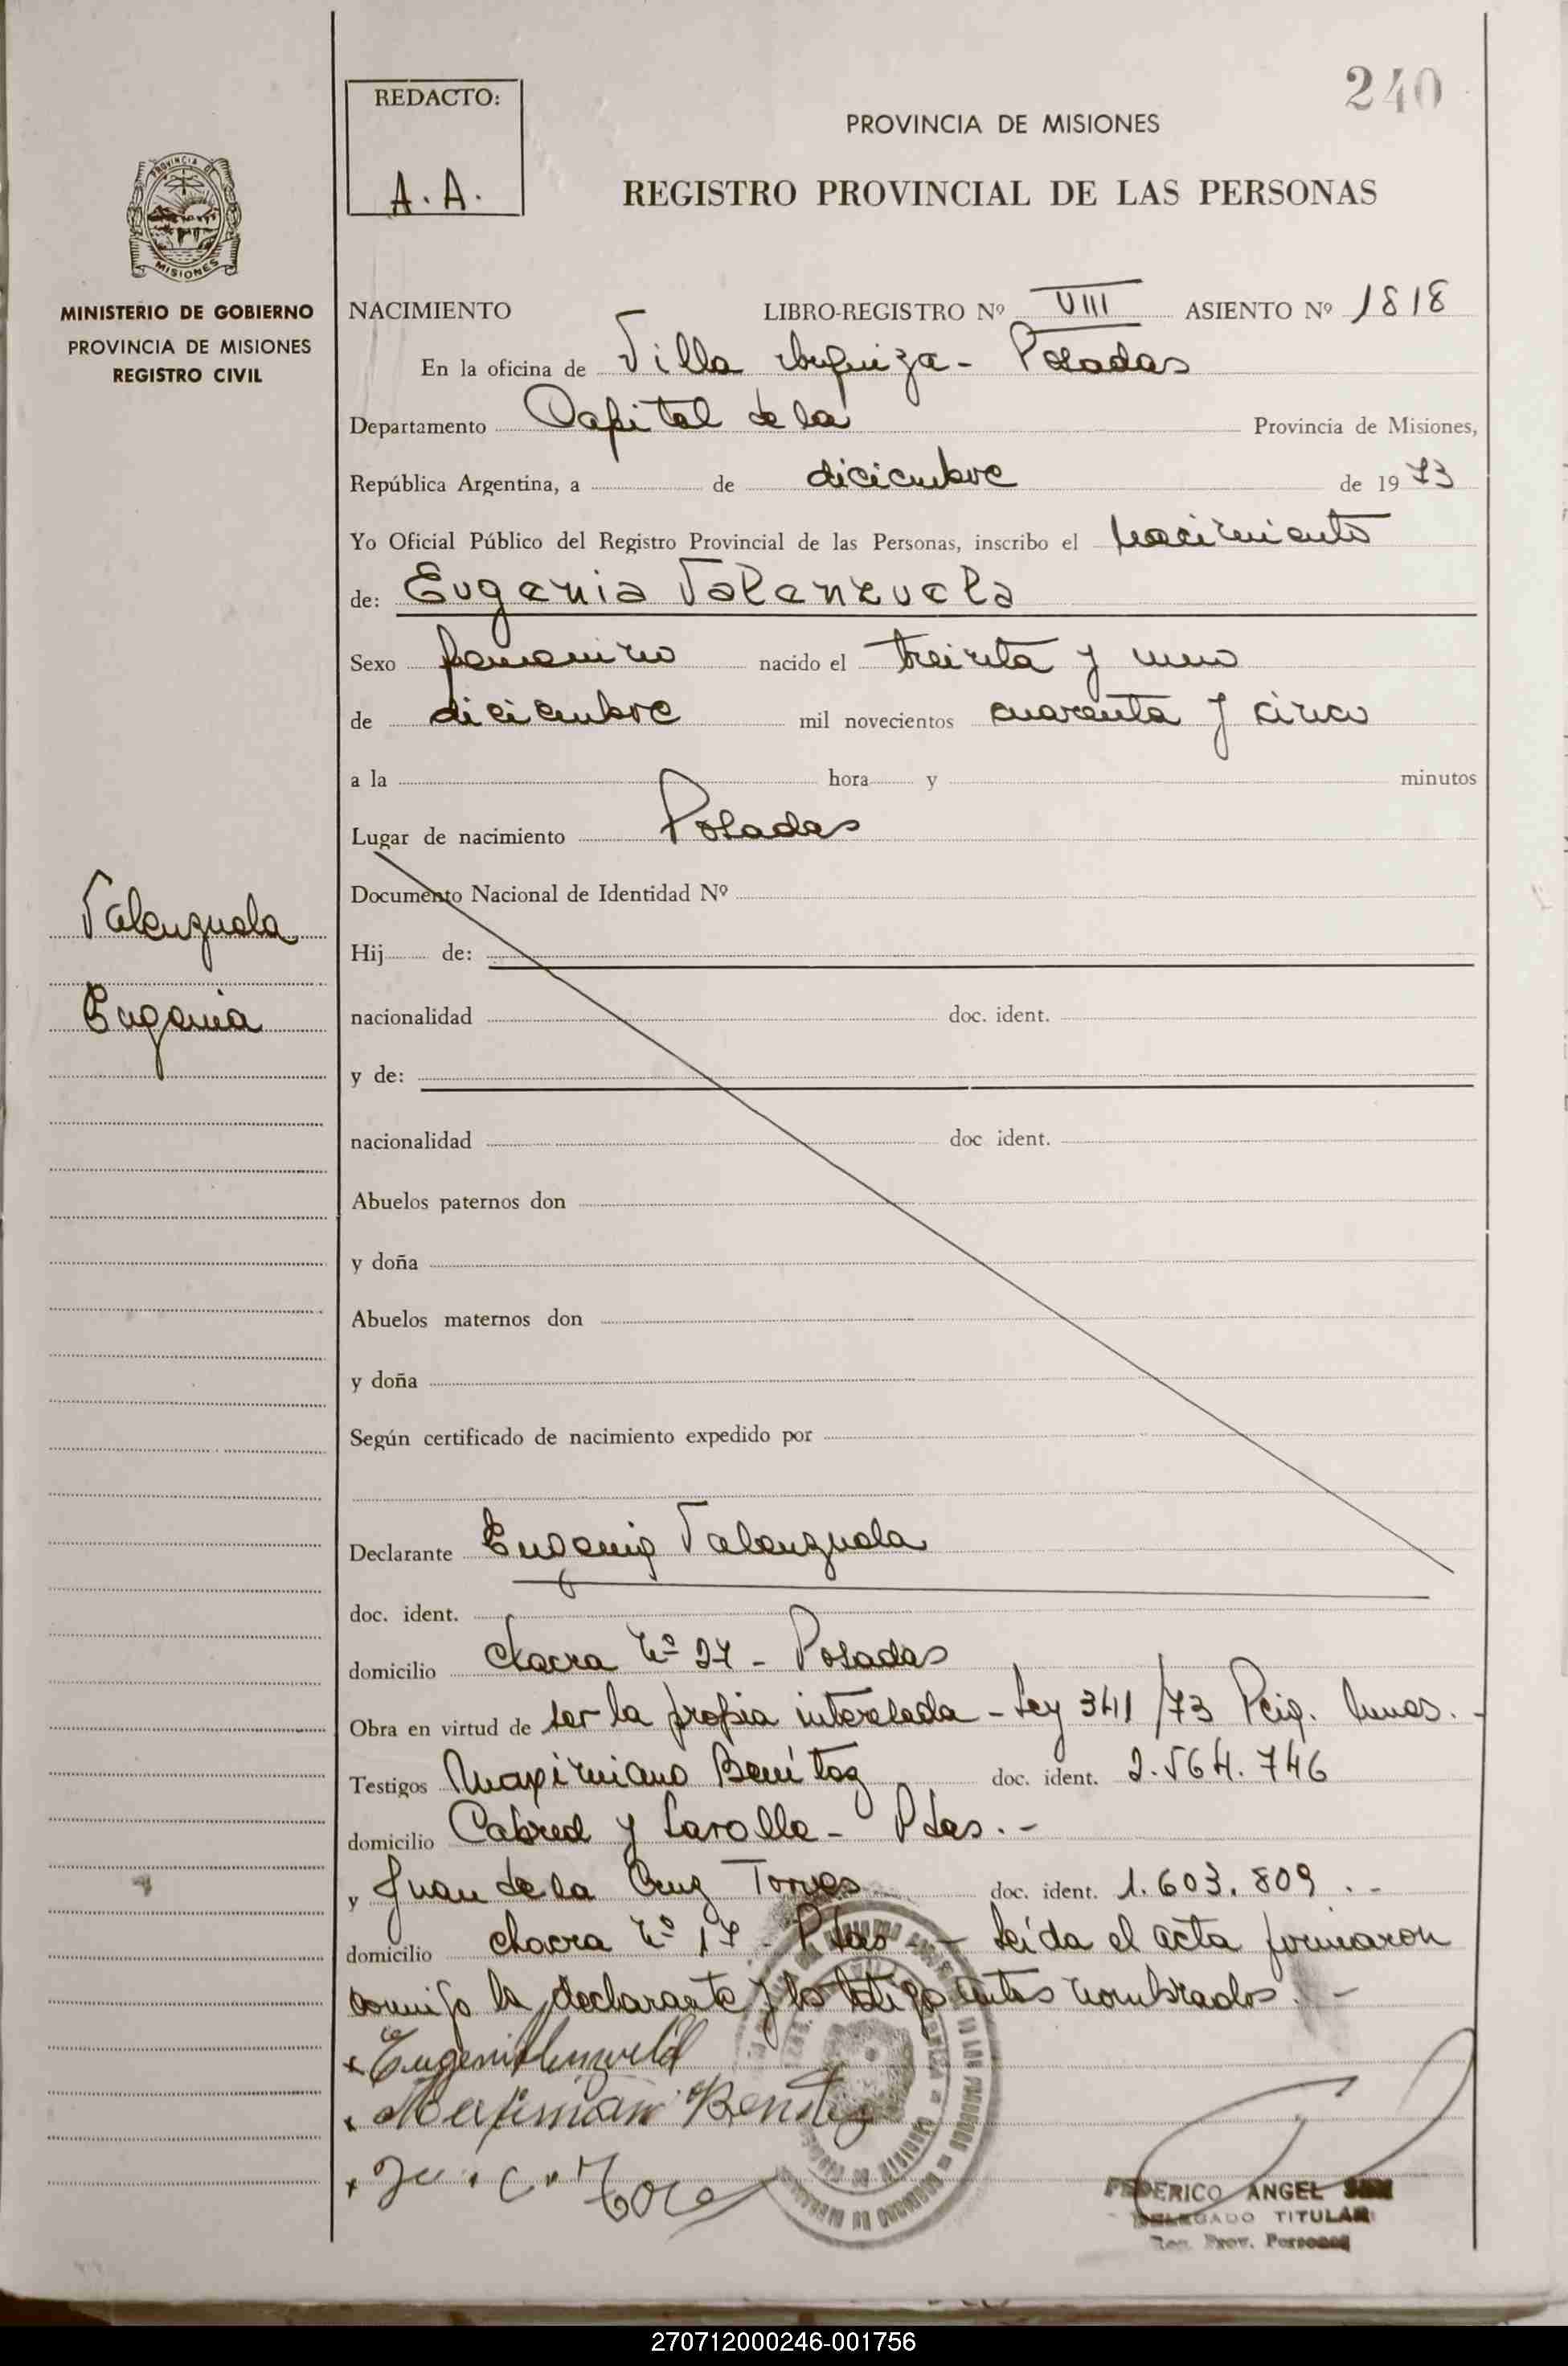 240
REDACTO:
A. A.
PROVINCIA DE MISIONES
REGISTRO PROVINCIAL DE LAS PERSONAS
PROVINCIA DE
MISIONES
MINISTERIO DE GOBIERNO
PROVINCIA DE MISIONES
REGISTRO CIVIL
NACIMIENTO LIBRO-REGISTRO Nº VIII ASIENTO Nº 1818
En la oficina de Villa Urquiza - Posadas
Departamento Capital de la Provincia de Misiones,
República Argentina, a de diciembre de 1973
Yo Oficial Público del Registro Provincial de las Personas, inscribo el nacimiento
de: Eugenia Valenzuela
Sexo femenino nacido el treinta y uno
de diciembre mil novecientos cuarenta y cinco
a la hora y minutos
Lugar de nacimiento Posadas
Documento Nacional de Identidad Nº
Valenzuela
Hij de:
Eugenia
nacionalidad doc. ident.
y de:
nacionalidad doc ident.
Abuelos paternos don
y doña
Abuelos maternos don
y doña
Según certificado de nacimiento expedido por
Declarante Eugenia Valenzuela
doc. ident.
domicilio chacra Nº 27 - Posadas
Obra en virtud de ser la propia interesada - Ley 341/73
Testigos Maximiano Benítez doc. ident. 2.564.746
domicilio Cabred y Lavalle - Pdas. -
y Juan de la Cruz Torres doc. ident. 1.603.809 . -
domicilio chacra Nº 17 - Pdas - leída el acta firmaron
conmigo la declarante y los testigos antes nombrados. -
FEDERICO ANGEL
DELEGADO TITULAR
Reg. Prov. Personas
270712000246-001756